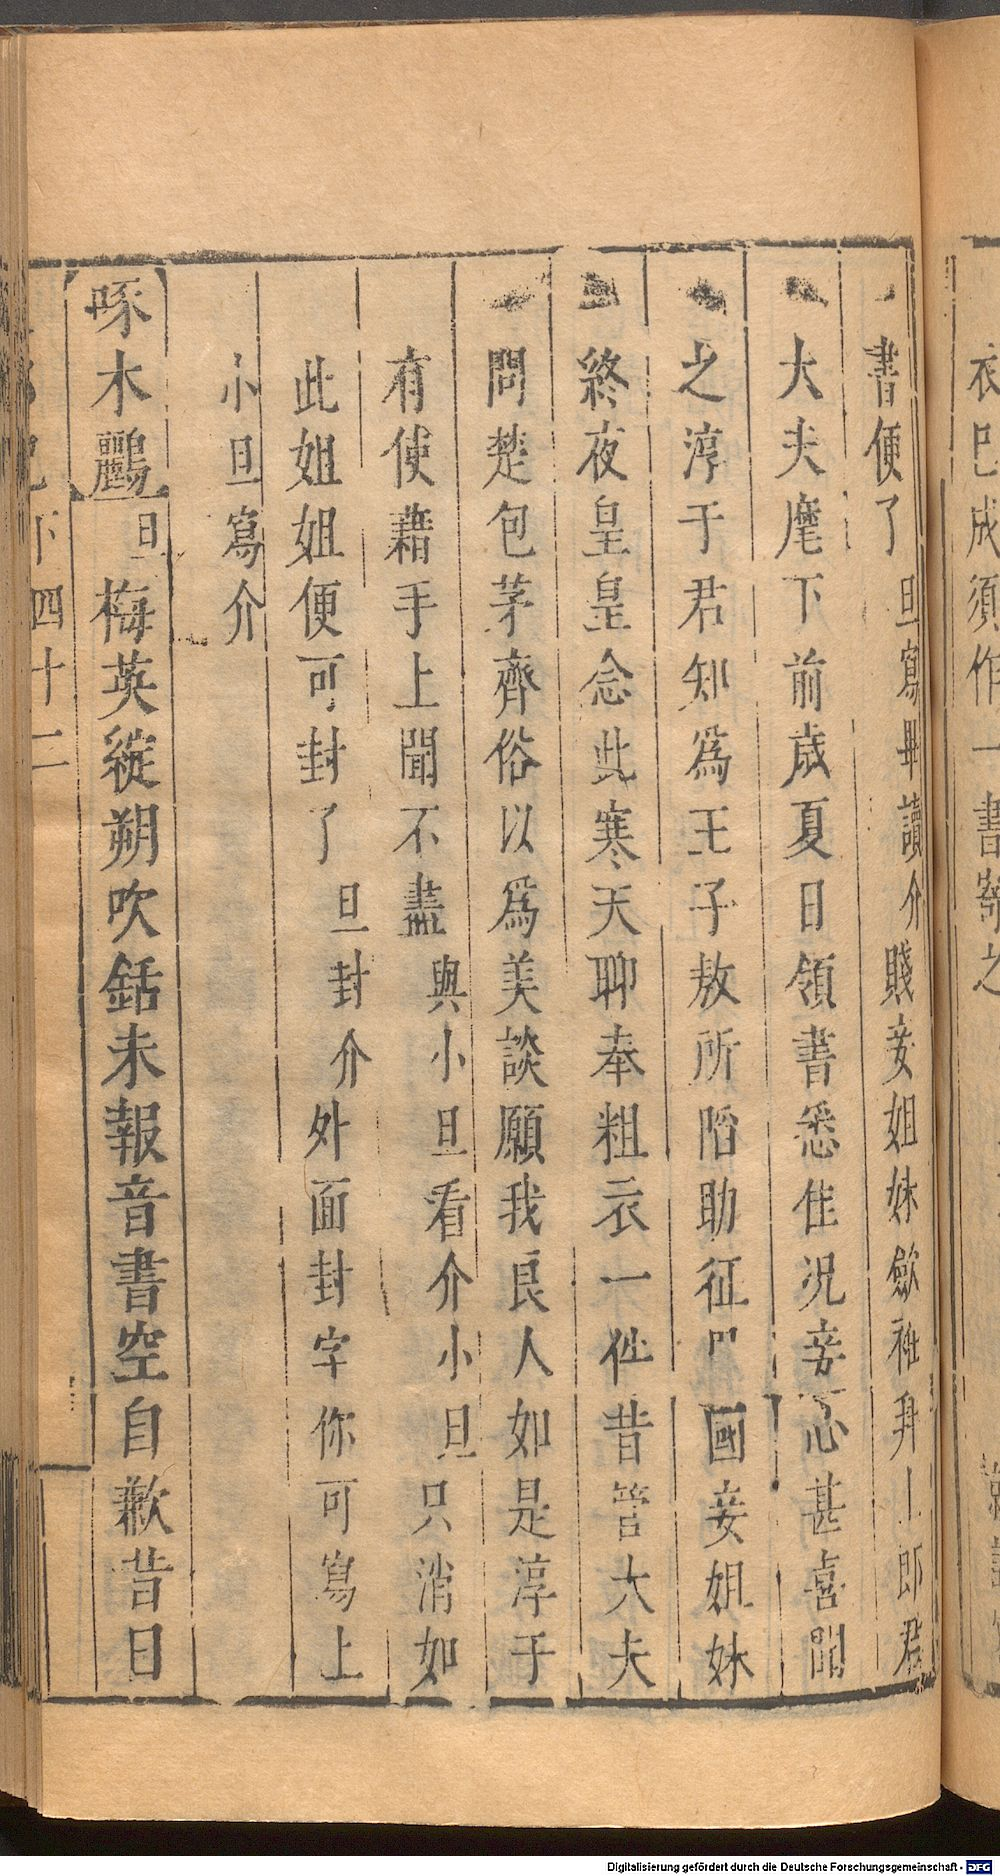 衣已成須作一書寄之
書便了旦寫畢讀介賤妾姐妹歛衽拜上郎君
大夫麾下前歲夏日領書悉佳况妾心甚喜聞
之淳于君知爲王子敖所陷助征門國妾姐妹
終夜皇皇念此寒天聊奉粗衣一件昔管大夫
問楚包茅齊俗以爲美談願我良人如是淳于
有使藉手上聞不盡與小旦看介小旦只消如
此姐姐便可封了旦封介外面封字你可寫上
小旦寫介
啄木鸝旦梅英縱朔吹銛未報音書空自歉昔日
下四十二
Digitalisierung gefördert durch die Deutsche Forschungsgemeinschaft - DFG